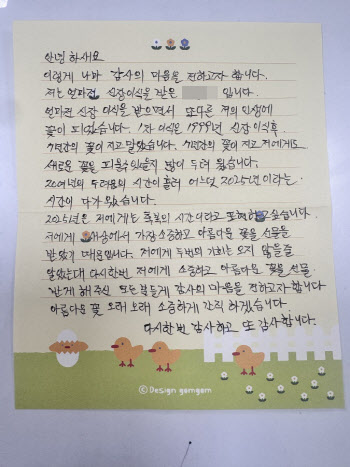 안녕 하세요
이렇게 나마 감사의 마음을 전하고자 합니다.
저는 얼마전 신장이식을 받은 입니다.
얼마전 신장 이식을 받으면서 또다른 저의 인생에
꽃이 피었습니다. 1차 이식은 1999년 신장 이식후
7년간의 꽃이 지고 말았습니다. 7년간의 꽃이 지고 저에게도
새로운 꽃을 피울수 있을지 많이 두려 웠습니다.
20여년의 두려움의 시간이 흘러 어느덧 2025년 이라는
시간이 다가 왔습니다.
2025년은 저에게는 축복의 시간이라고 표현하고 싶습니다.
저에게 세상에서 가장 소중하고 아름다운 꽃을 선물을
받았기 때문입니다. 저에게 두번의 기회는 오지 않을줄
알았는데 다시한번 저에게 소중하고 아름다운 꽃을 선물
받게 해주신 모든분들게 감사의 마음을 전하고자 합니다
아름다운 꽃 오래 오래 소중하게 간직 하겠습니다
다시한번 감사하고 또 감사합니다.
© Design gomgom